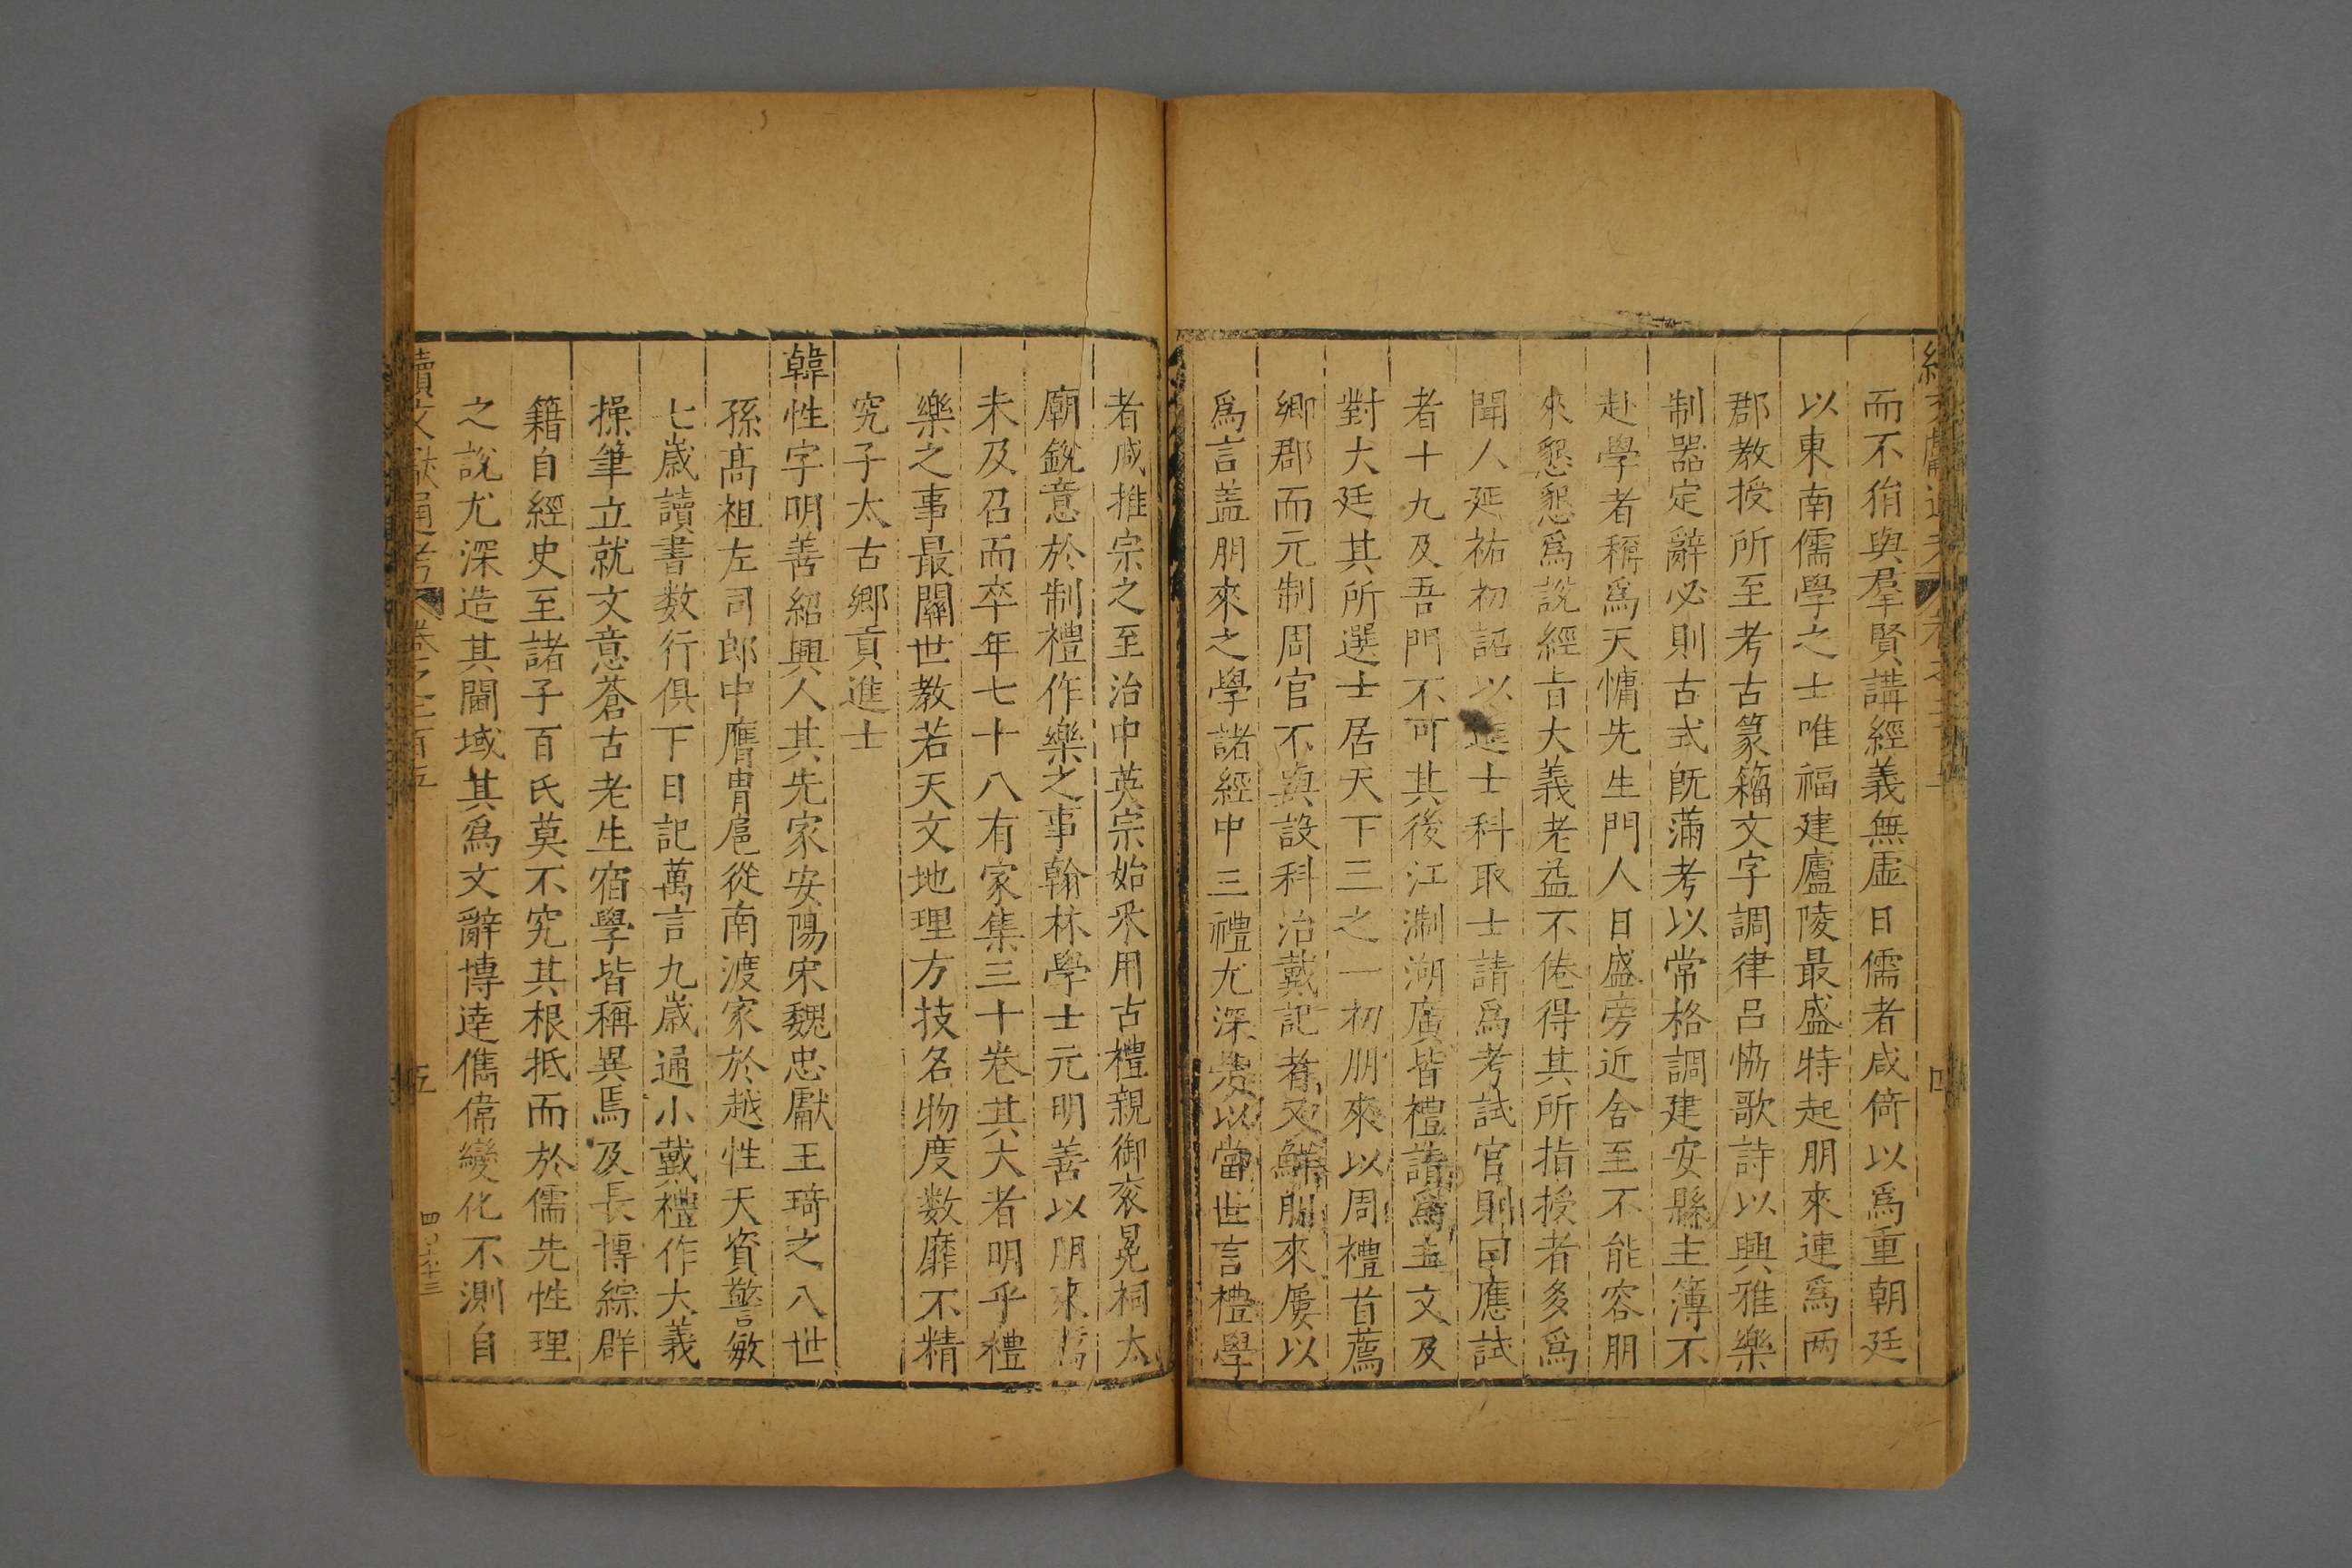 而不狥與羣賢講經義無虛日儒者咸倚以爲重朝廷
以東南儒學之士唯福建廬陵最盛特起朋來連爲两
郡教授所至考古篆籀文字調律呂恊歌詩以興雅樂
制器定辭必則古式旣滿考以常格調建安縣主簿不
赴學者稱爲天慵先生門人日盛旁近舍至不能容朋
來懇懇爲說經旨大義老益不倦得其所指授者多爲
聞人延祐初詔以進士科取士請爲考試官則曰應試
者十九及吾門不可其後江淛湖廣皆禮請爲主文及
對大廷其所選士居天下三之一初朋來以周禮首薦
鄉郡而元制周官不與設科治戴記者又鮮朋來屢以
爲言盖朋來之學諸經中三禮尤深以當世言禮學
者咸推宗之至治中英宗始采用古禮親御衮冕祠太
廟銳意於制禮作樂之事翰林學士元明善以朋來薦
未及召而卒年七十八有家集三十卷其大者明乎禮
樂之事最關世教若天文地理方技名物度数靡不精
究子太古鄉貢進士
韓性字明善紹興人其先家安陽宋魏忠獻王琦之八世
孫高祖左司郎中膺冑扈從南渡家於越性天資警敏
七歲讀書数行俱下日記萬言九歲通小戴禮作大義
操筆立就文意蒼古老生宿學皆稱異焉及長博綜群
籍自經史至諸子百氏莫不究其根抵而於儒先性理
之說尤深造其閫域其爲文辭博逹儁偉變化不測自
續文獻通考 卷之二百五 五